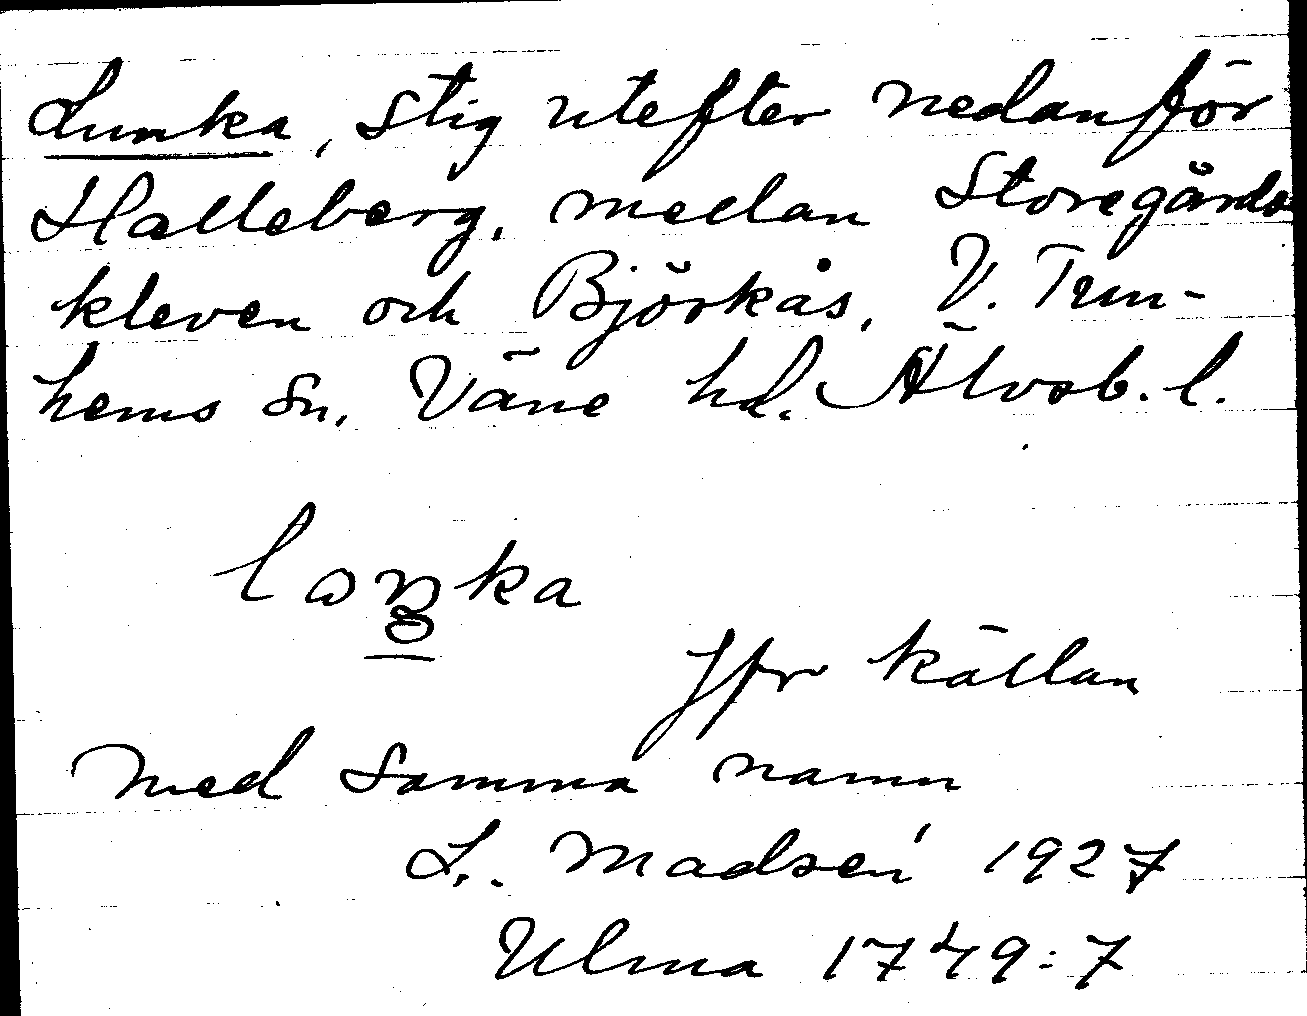 Lunka, stig utefter nedanför
Halleberg, mellan Storegårds
kleven och Björkås, V. Tun-
hems sn. Väne hd. Älvsb. l.
loŋka
Jfr källan
med samma namn
L. Madsen 1927
Ulma 1749:7